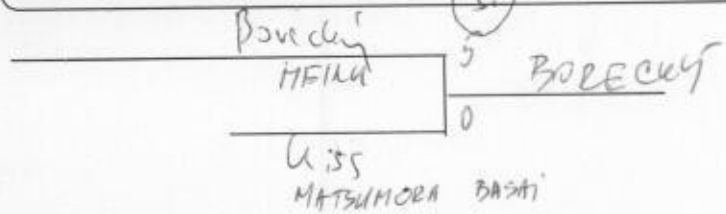 3.
Borecký
5
BORECKÝ
0
Kiss
MATSUMORA BASAI